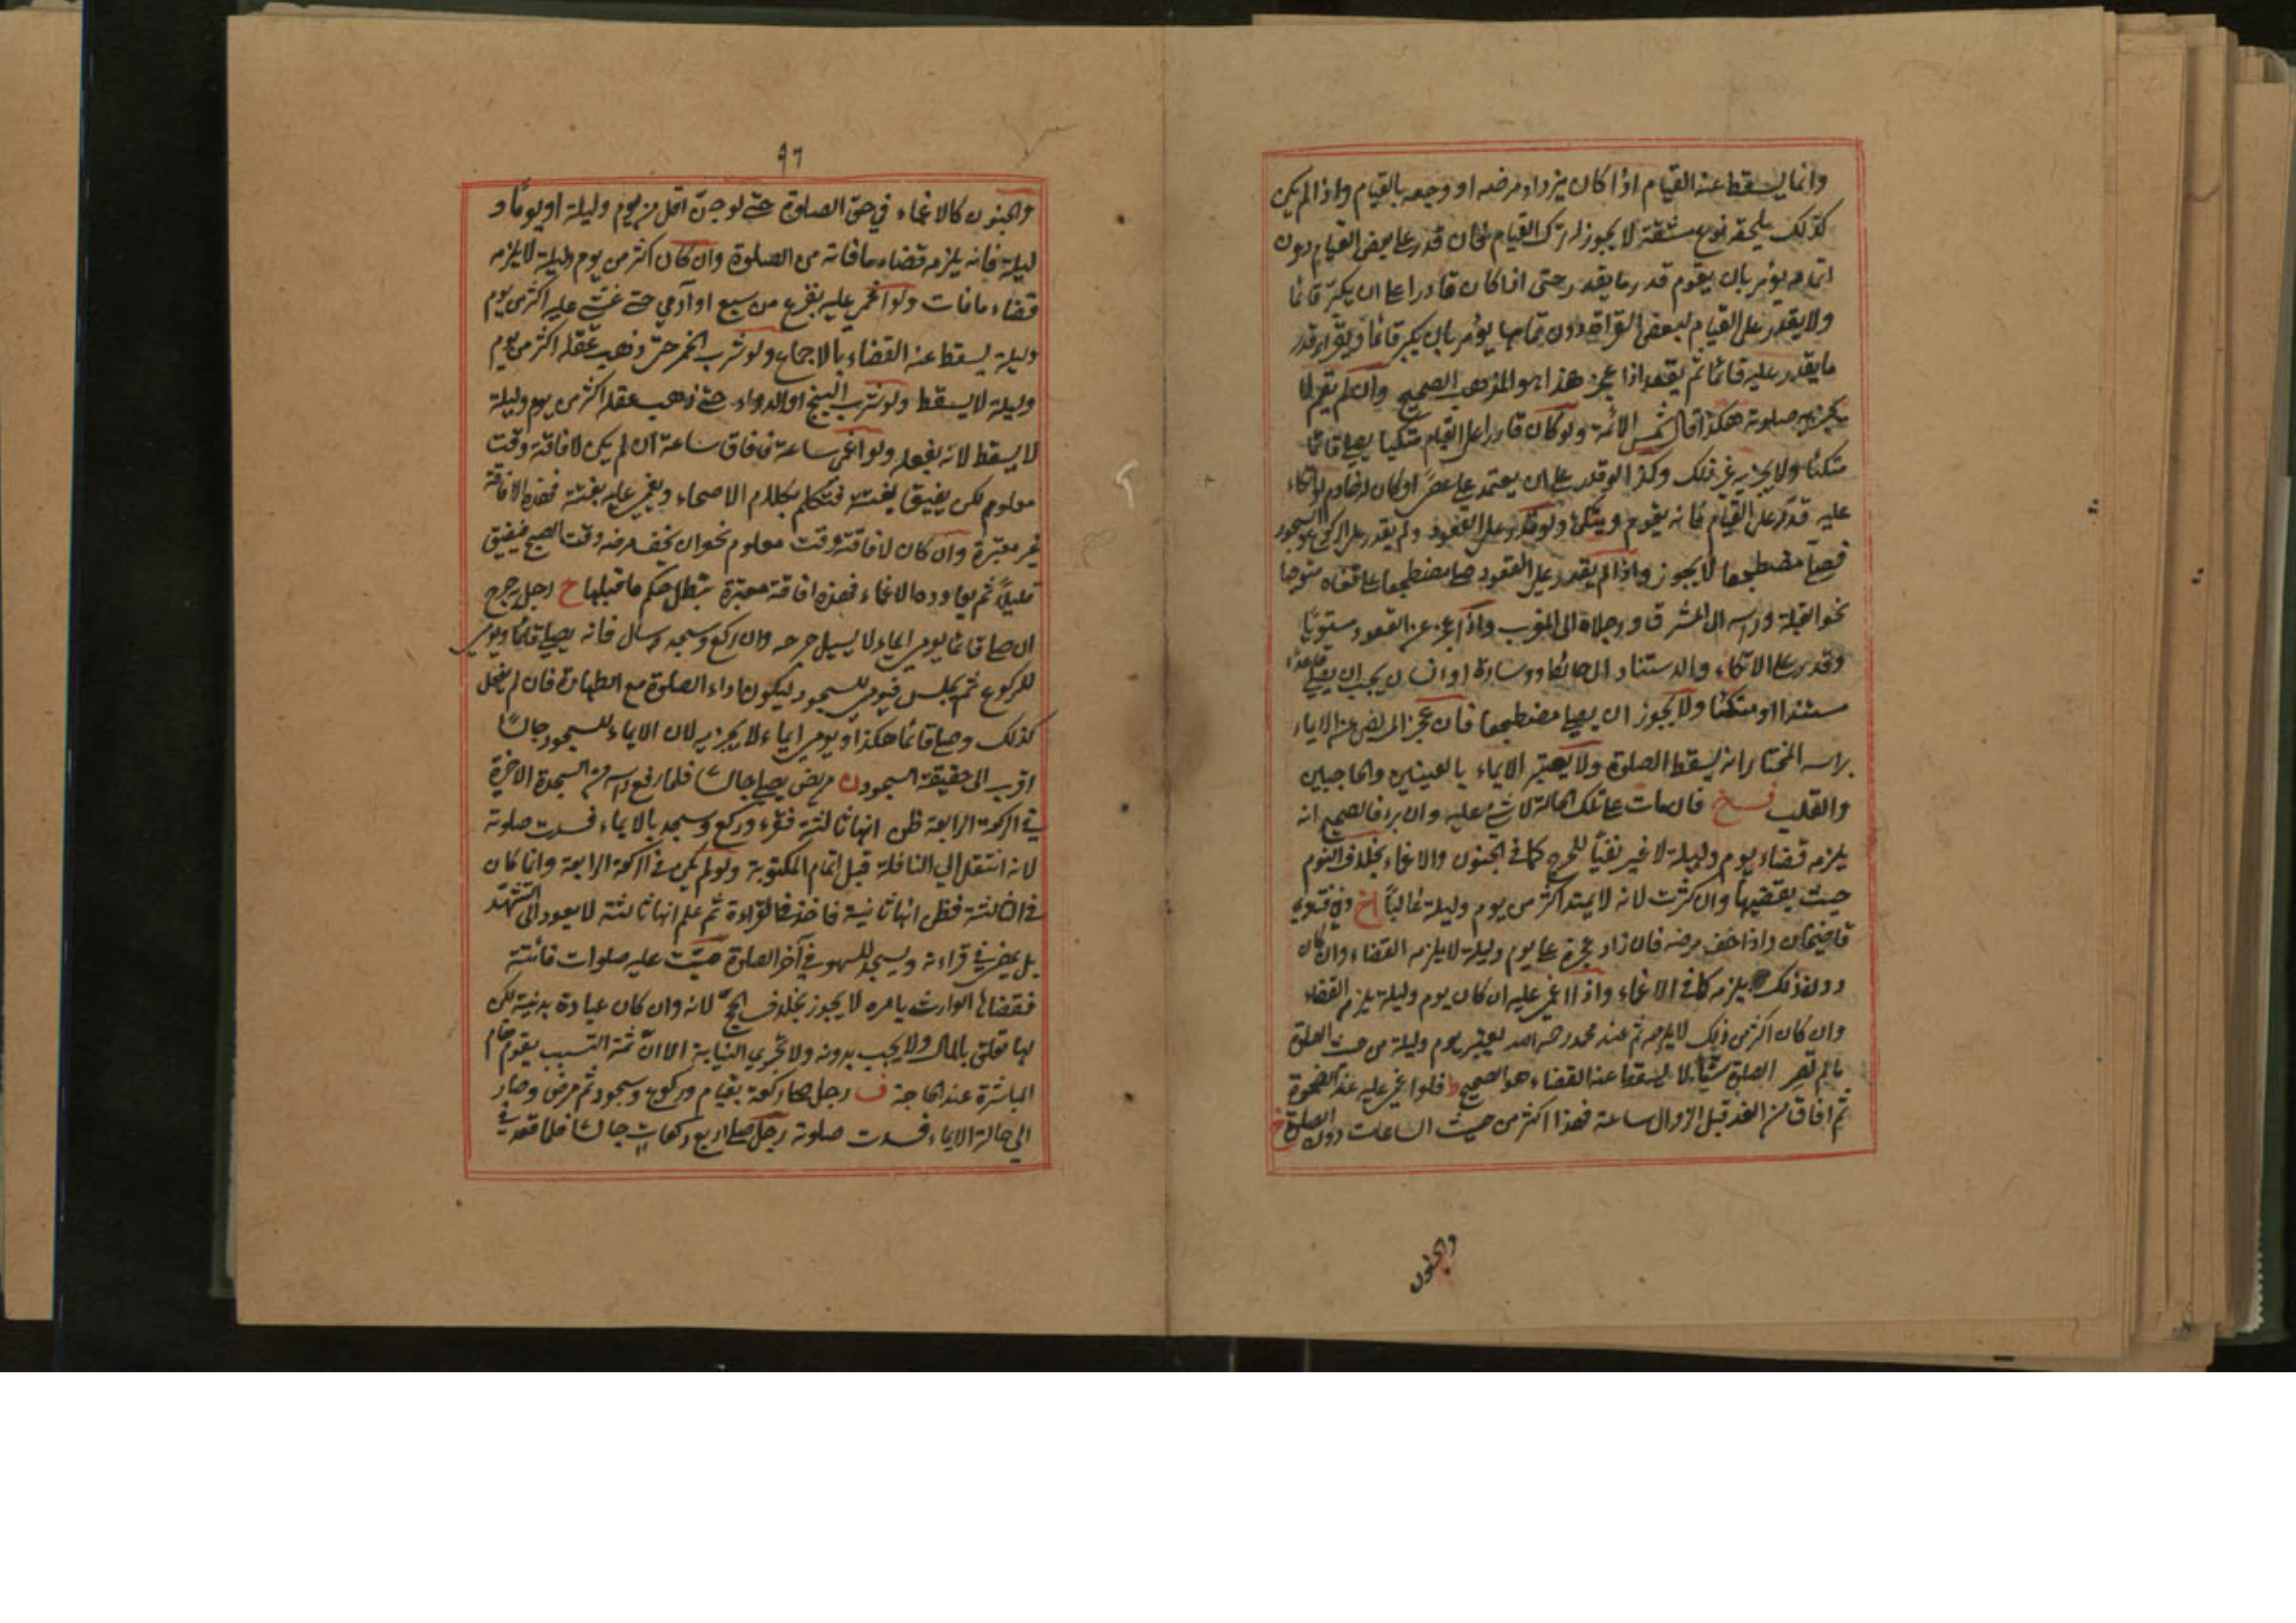 وانما يسقط عنه القيام اذا كان يزداد مرضه او وجعه بالقيام واذا لم يكن
كذلك يلحقه نوع مشقة لا يجوز له ترك القيام فان قدر على بعض القيام دون
اتمامه يؤمر بان يقوم قدر ما يقدر حتى اذا كان قادرا على ان يكبر قائما
ولا يقدر على القيام لبعض القراءة دون تمامها يؤمر بان يكبر قائما ويقراء قدر
ما يقدر عليه قائما ثم يقعد اذا عجز هذا هو المذهب الصحيح وان لم يقم لا
يجزيه صلوته هكذا قال شمس الائمة ولو كان قادرا على القيام متكيا يصلي قائما
متكئا ولا يجزيه غير ذلك وكذا لو قدر على ان يعتمد على عصى او كان له خادم لو اتكاء
عليه قدر على القيام فانه يقوم ويتكئ ولو قدر على القعود ولم يقدر على الركوع والسجود
فصلى مضطجعا لا يجوز واذا لم يقدر على القعود صلى مضطجعا على قفاه متوجها
نحو القبلة وراسه الى المشرق ورجلاه الى المغرب واذا عجز عن القعود مستويا
وقدر على الاتكاء والاستناد الى حائط او وسادة او انسان يجب ان يصلي قاعدا
مستندا او متكئا ولا يجوز ان يصلي مضطجعا فان عجز المريض عن الايماء
براسه المختار انه يسقط الصلوة ولا يعتبر الايماء بالعينين والحاجبين
والقلب فان مات على تلك الحالة لا شئ عليه وان برء فالصحيح انه
يلزمه قضاء يوم وليلة لا غير نفيا للحرج كما في الجنون والاغماء بخلاف النوم
حيث يقضيها وان كثرت لانه لا يمتد اكثر من يوم وليلة غالبا وفي فتاوي
قاضيخان واذا خف مرضه فان زاد عجزه على يوم وليلة لا يلزمه القضاء وان كان
دون ذلك يلزمه كما في الاغماء واذا اغمي عليه ان كان يوم وليلة يلزم القضاء
وان كان اكثر من ذلك لا يلزمه ثم عند محمد رحمه الله يعتبر يوم وليلة من حيث الصلوة
ما لم تصر الصلوة ستا لا يسقط عنه القضاء هو الصحيح فلو اغمي عليه عند الضحوة
ثم افاق من الغد قبل الزوال ساعة فهذا اكثر من حيث الساعات دون الصلوة
والجنون
٩٦
والجنون كالاغماء في حق الصلوة حتى لو جن اقل من يوم وليلة او يوما و
ليلة فانه يلزمه قضاء ما فاته من الصلوة وان كان اكثر من يوم وليلة لا يلزمه
قضاء ما فات ولو اغمي عليه بفزع من سبع او آدمي حتى غشي عليه اكثر من يوم
وليلة يسقط عنه القضاء بالاجماع ولو شرب الخمر حتى ذهب عقله اكثر من يوم
وليلة لا يسقط ولو شرب البنج او الدواء حتى ذهب عقله اكثر من يوم وليلة
لا يسقط لانه بفعله ولو اغمي ساعة فافاق ساعة ان لم يكن لافاقته وقت
معلوم لكن يفيق بغتة فتكلم بكلام الاصحاء ويغمى عليه بغتة فهذه الافاقة
غير معتبرة وان كان لافاقته وقت معلوم نحو ان يخف مرضه وقت الصبح فيفيق
قليلا ثم يعاوده الاغماء فهذه افاقة معتبرة تبطل حكم ما قبلها خ رجل جرح
ان صلى قائما يومي ايماء لا يسيل جرحه وان ركع وسجد سال فانه يصلي قائما ويومي
للركوع ثم يجلس فيومي للسجود ليكون اداء الصلوة مع الطهارة فان لم يفعل
كذلك وصلى قائما هكذا ويومي ايماء لا يجزيه لان الايماء للسجود جالسا
اقرب الى حقيقة السجود ن مريض يصلي جالسا فلما رفع راسه من السجدة الاخرة
في الركعة الرابعة ظن انها ثالثة فقرء وركع وسجد بالايماء فسدت صلوته
لانه انتقل الي النافلة قبل اتمام المكتوبة ولو لم يكن في الركعة الرابعة وانما كان
في الثالثة فظن انها ثانية فاخذ في القراءة ثم علم انها ثالثة لا يعود الى التشهد
بل يمضي في قراءته ويسجد للسهو في آخر الصلوة ميت عليه صلوات فائتة
فقضاها الوارث بامره لا يجوز بخلاف الحج لانه وان كان عبادة بدنية لكن
لها تعلق بالمال ولا يجب بدونه ولا تجري النيابة الا ان ثمة التسبب يقوم مقام
المباشرة عند الحاجة ف رجل صلى ركعة بقيام وركوع وسجود ثم مرض وصار
الي حالة الايماء فسدت صلوته رجل صلى اربع ركعات جالسا فلما قعد في